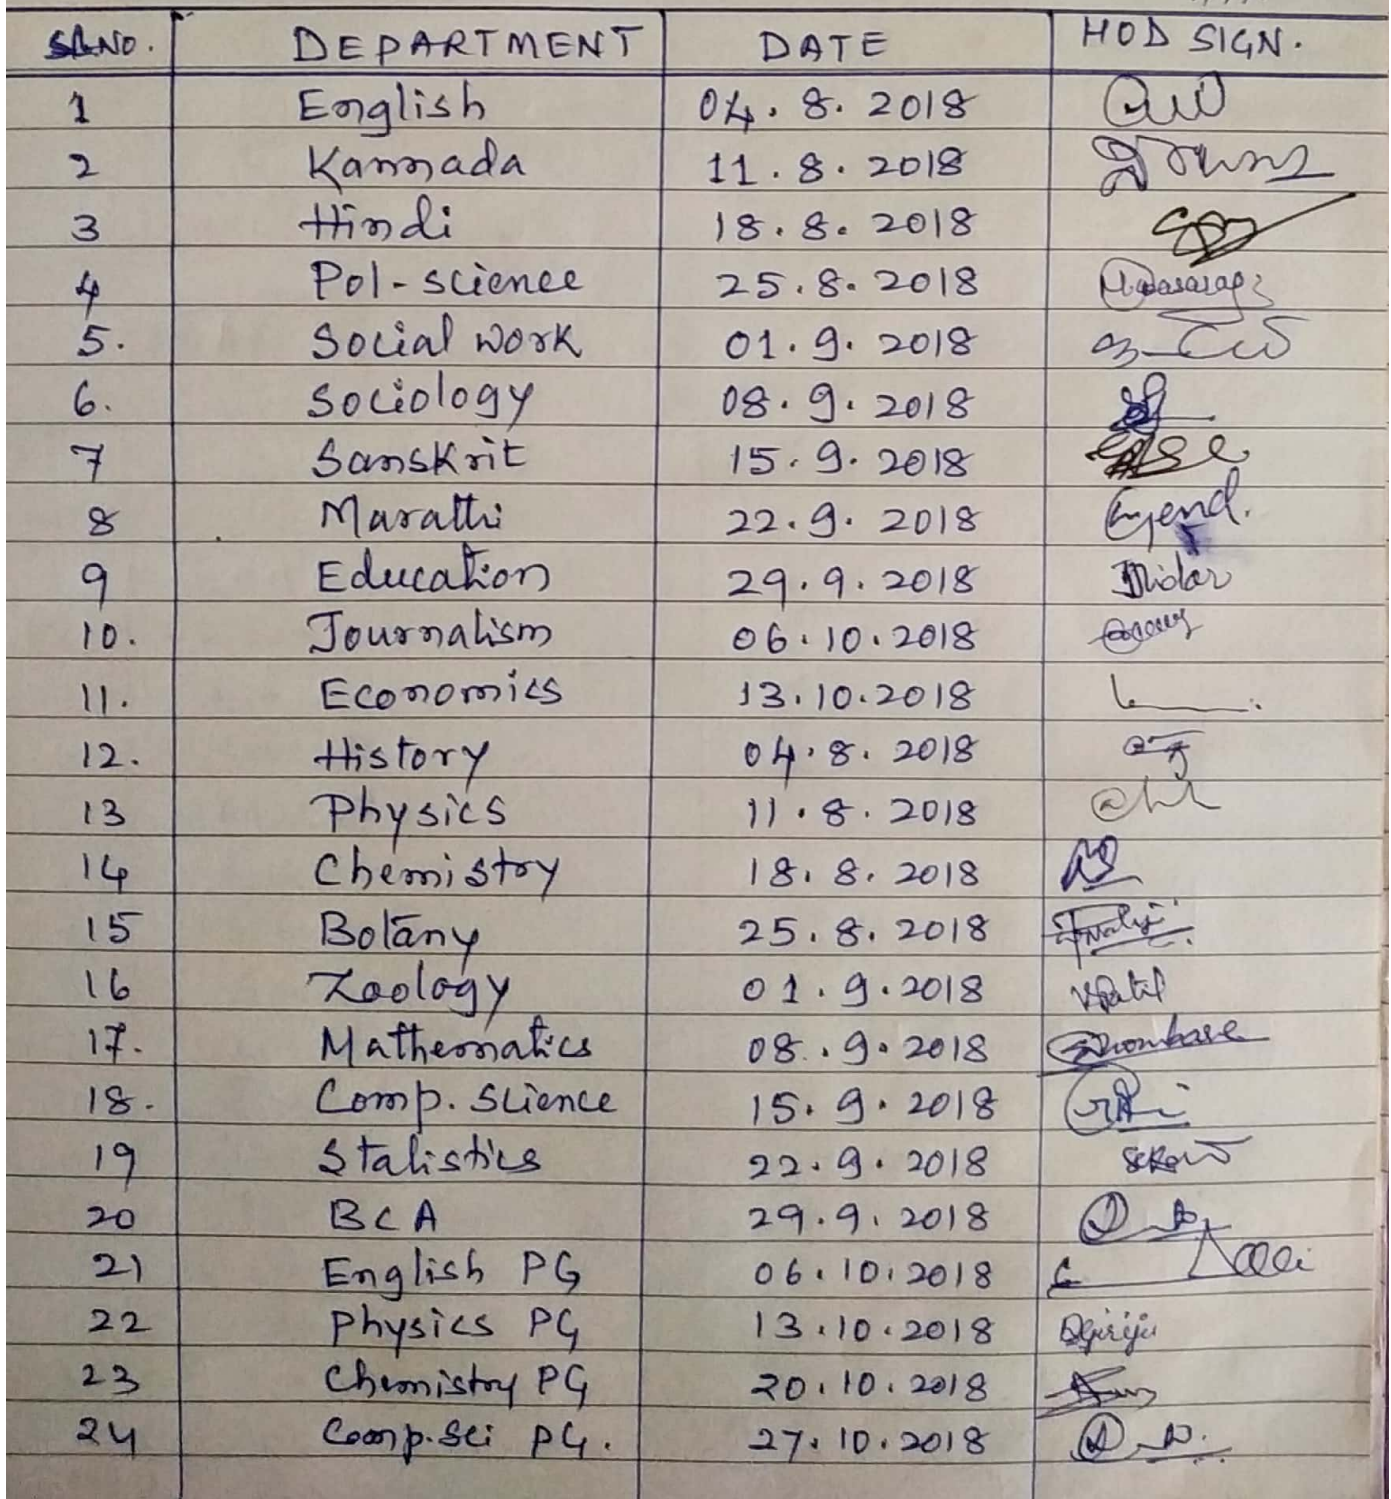 SL NO. DEPARTMENT DATE HOD SIGN.
1 English 04. 8. 2018
2 Kannada 11. 8. 2018
3 Hindi 18. 8. 2018
4 Pol-science 25. 8. 2018
5. Social work 01. 9. 2018
6. Sociology 08. 9. 2018
7 Sanskrit 15. 9. 2018
8 Marathi 22. 9. 2018
9 Education 29. 9. 2018
10. Journalism 06. 10. 2018
11. Economics 13. 10. 2018
12. History 04. 8. 2018
13 Physics 11. 8. 2018
14 Chemistry 18. 8. 2018
15 Botany 25. 8. 2018
16 Zoology 01. 9. 2018
17. Mathematics 08. 9. 2018
18. Comp. Science 15. 9. 2018
19 Statistics 22. 9. 2018
20 BCA 29. 9. 2018
21 English PG 06. 10. 2018
22 Physics PG 13. 10. 2018
23 Chemistry PG 20. 10. 2018
24 Comp. Sci PG. 27. 10. 2018